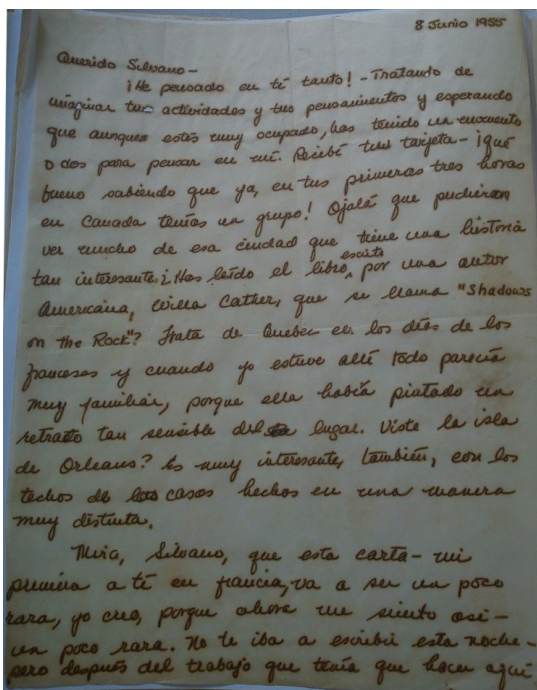 8 Junio 1955
Querido Silvano-
¡He pensado en ti tanto! - Tratando de
imaginar tus actividades y tus pensamientos y esperando
que aunque estés muy ocupado, has tenido un momento
o dos para pensar en mi. Recibí tus tarjeta - ¡qué
bueno sabiendo que ya, en tus primeras tres horas
en Canada tenías un grupo! Ojalá que pudieran
ver mucho de esa ciudad que tiene una historia
tan interesante. ¿Has leído el libro, escrito por una autor
Americana, Willa Cather, que se llama "Shadows
on the Rock"? Trata de Quebec en los días de los
franceses y cuando yo estuve allí todo parecía
muy familiar, porque ella había pintado un
retrato tan sensible del lugar. Viste la isla
de Orleans? Es muy interesante, también, con los
techos de las casas hechos en una manera
muy distinta.
Mira, Silvano, que esta carta - mi
primera a ti en francia, va a ser un poco
rara, yo creo, porque ahora me siento así -
un poco rara. No te iba a escribir esta noche -
pero después del trabajo que tenía que hacer aquí